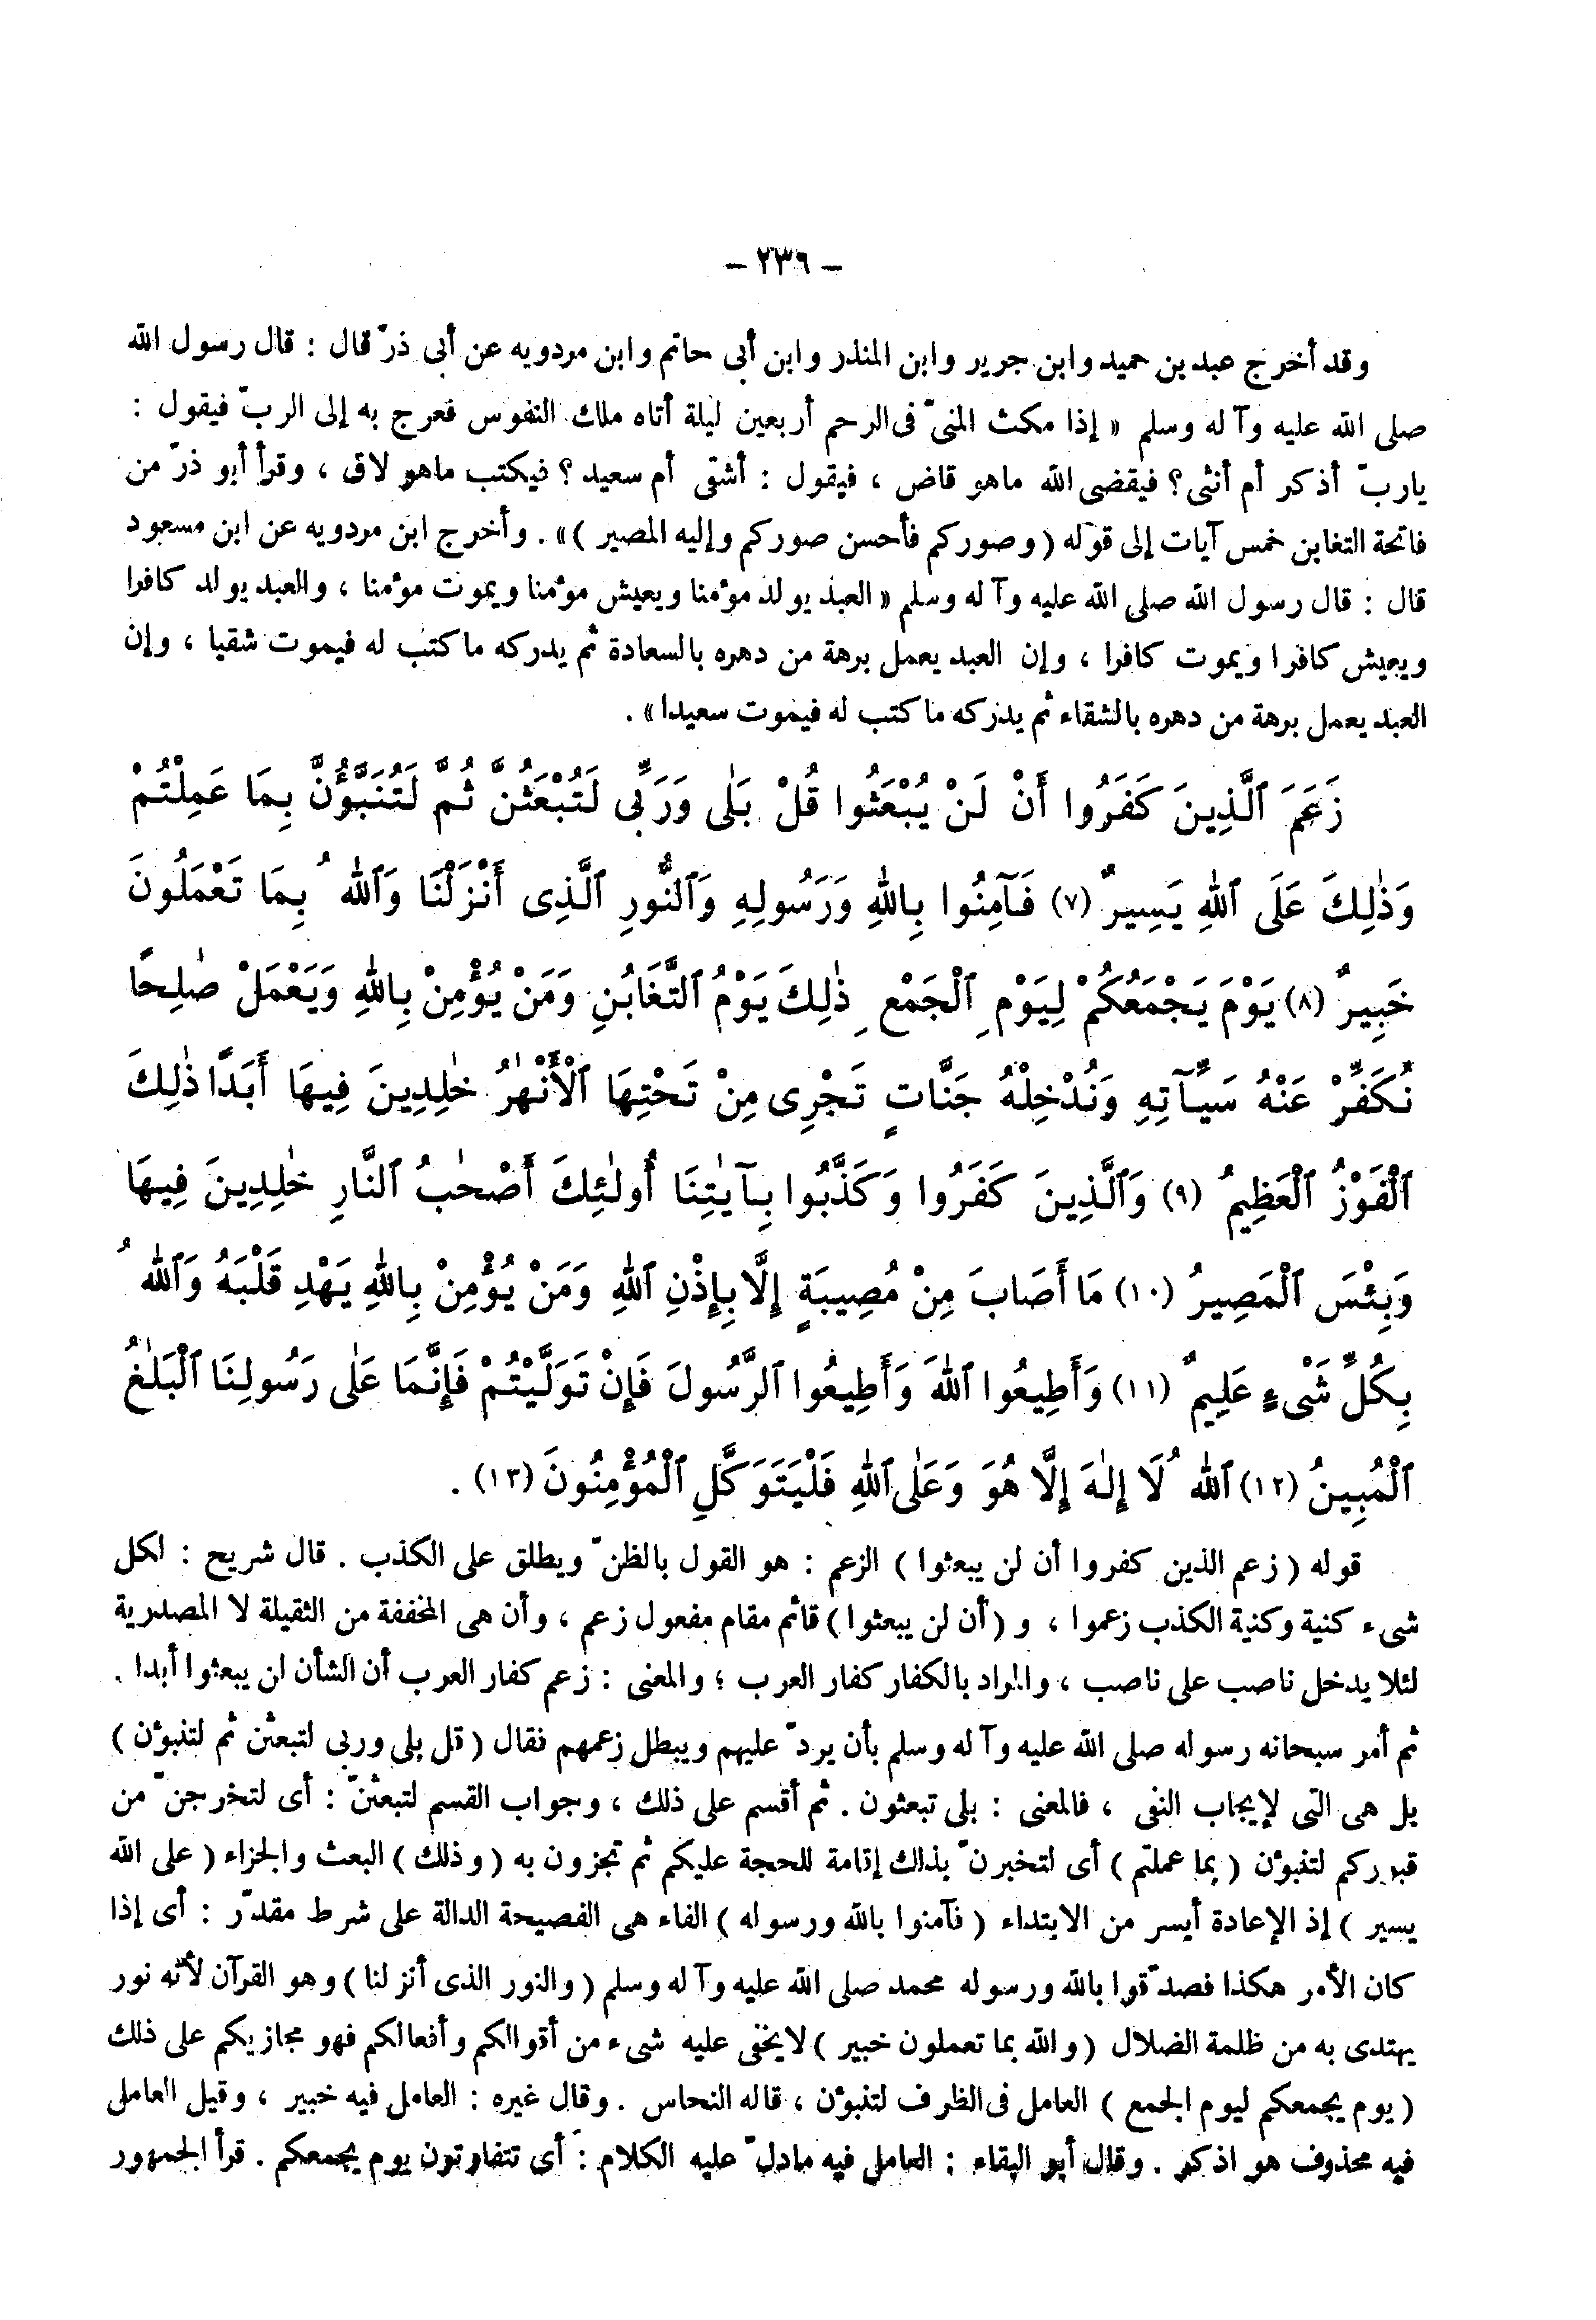 – ٢٣٦ –
وقد أخرج عبد بن حميد وابن جرير وابن المنذر وابن أبى حاتم وابن مردويه عن أبى ذرّ قال : قال رسول الله
صلى الله عليه وآله وسلم « إذا مكث المنىّ فى الرحم أربعين ليلة أتاه ملك النفوس فعرج به إلى الربّ فيقول :
ياربّ أذكر أم أنثى؟ فيقضى الله ماهو قاض ، فيقول : أشقى أم سعيد ؟ فيكتب ماهو لاق ، وقرأ أبو ذرّ من
فاتحة التغابن خمس آيات إلى قوله ( وصوركم فأحسن صوركم وإليه المصير )» . وأخرج ابن مردويه عن ابن مسعود
قال : قال رسول الله صلى الله عليه وآله وسلم « العبد يولد مؤمنا ويعيش مؤمنا ويموت مؤمنا ، والعبد يولد كافرا
ويعيش كافرا ويموت كافرا ، وإن العبد يعمل برهة من دهره بالسعادة ثم يدركه ماكتب له فيموت شقيا ، وإن
العبد يعمل برهة من دهره بالشقاء ثم يدركه ماكتب له فيموت سعيدا» .
زَعَمَ ٱلَّذِينَ كَفَرُوا أَنْ لَنْ يُبْعَثُوا قُلْ بَلَى وَرَبِّى لَتُبْعَثُنَّ ثُمَّ لَتُنَبَّؤُنَّ بِمَا عَمِلْتُمْ
وَذٰلِكَ عَلَى ٱللهِ يَسِيرٌ (٧) فَآمِنُوا بِاللهِ وَرَسُولِهِ وَٱلنُّورِ ٱلَّذِى أَنْزَلْنَا وَٱللهُ بِمَا تَعْمَلُونَ
خَبِيرٌ (٨) يَوْمَ يَجْمَعُكُمْ لِيَوْمِ ٱلْجَمْعِ ذٰلِكَ يَوْمُ ٱلتَّغَابُنِ وَمَنْ يُؤْمِنْ بِاللهِ وَيَعْمَلْ صٰلِحًا
نُكَفِّرْ عَنْهُ سَيِّآتِهِ وَنُدْخِلْهُ جَنَّاتٍ تَجْرِى مِنْ تَحْتِهَا ٱلْأَنْهٰرُ خٰلِدِينَ فِيهَا أَبَدًا ذٰلِكَ
ٱلْفَوْزُ ٱلْعَظِيمُ (٩) وَٱلَّذِينَ كَفَرُوا وَكَذَّبُوا بِآيٰتِنَا أُولٰئِكَ أَصْحٰبُ ٱلنَّارِ خٰلِدِينَ فِيهَا
وَبِئْسَ ٱلْمَصِيرُ (١٠) مَا أَصَابَ مِنْ مُصِيبَةٍ إِلَّا بِإِذْنِ ٱللهِ وَمَنْ يُؤْمِنْ بِاللهِ يَهْدِ قَلْبَهُ وَٱللهُ
بِكُلِّ شَىْءٍ عَلِيمٌ (١١) وَأَطِيعُوا ٱللهَ وَأَطِيعُوا ٱلرَّسُولَ فَإِنْ تَوَلَّيْتُمْ فَإِنَّمَا عَلَى رَسُولِنَا ٱلْبَلٰغُ
ٱلْمُبِينُ (١٢) ٱللهُ لَا إِلٰهَ إِلَّا هُوَ وَعَلَى ٱللهِ فَلْيَتَوَكَّلِ ٱلْمُؤْمِنُونَ (١٣) .
قوله ( زعم الذين كفروا أن لن يبعثوا ) الزعم : هو القول بالظنّ ويطلق على الكذب . قال شريح : لكل
شىء كنية وكنية الكذب زعموا ، و ( أن لن يبعثوا ) قائم مقام مفعول زعم ، وأن هى المخففة من الثقيلة لا المصدرية
لئلا يدخل ناصب على ناصب ، والمراد بالكفار كفار العرب ؛ والمعنى : زعم كفار العرب أن الشأن لن يبعثوا أبدا .
ثم أمر سبحانه رسوله صلى الله عليه وآله وسلم بأن يردّ عليهم ويبطل زعمهم فقال ( قل بلى وربى لتبعثن ثم لتنبؤن )
بل هى التى لإيجاب النفى ، فالمعنى : بلى تبعثون . ثم أقسم على ذلك ، وجواب القسم لتبعثنّ : أى لتخرجنّ من
قبوركم لتنبؤن ( بما عملتم ) أى لتخبرنّ بذلك إقامة للحجة عليكم ثم تجزون به ( وذلك ) البعث والجزاء ( على الله
يسير ) إذ الإعادة أيسر من الابتداء ( فآمنوا بالله ورسوله ) الفاء هى الفصيحة الدالة على شرط مقدّر : أى إذا
كان الأمر هكذا فصدّقوا بالله ورسوله محمد صلى الله عليه وآله وسلم ( والنور الذى أنزلنا ) وهو القرآن لأنه نور
يهتدى به من ظلمة الضلال ( والله بما تعملون خبير ) لايخفى عليه شىء من أقوالكم وأفعالكم فهو مجازيكم على ذلك
( يوم يجمعكم ليوم الجمع ) العامل فى الظرف لتنبؤن ، قاله النحاس . وقال غيره : العامل فيه خبير ، وقيل العامل
فيه محذوف هو اذكر . وقال أبو البقاء : العامل فيه مادلّ عليه الكلام : أى تتفاوتون يوم يجمعكم . قرأ الجمهور